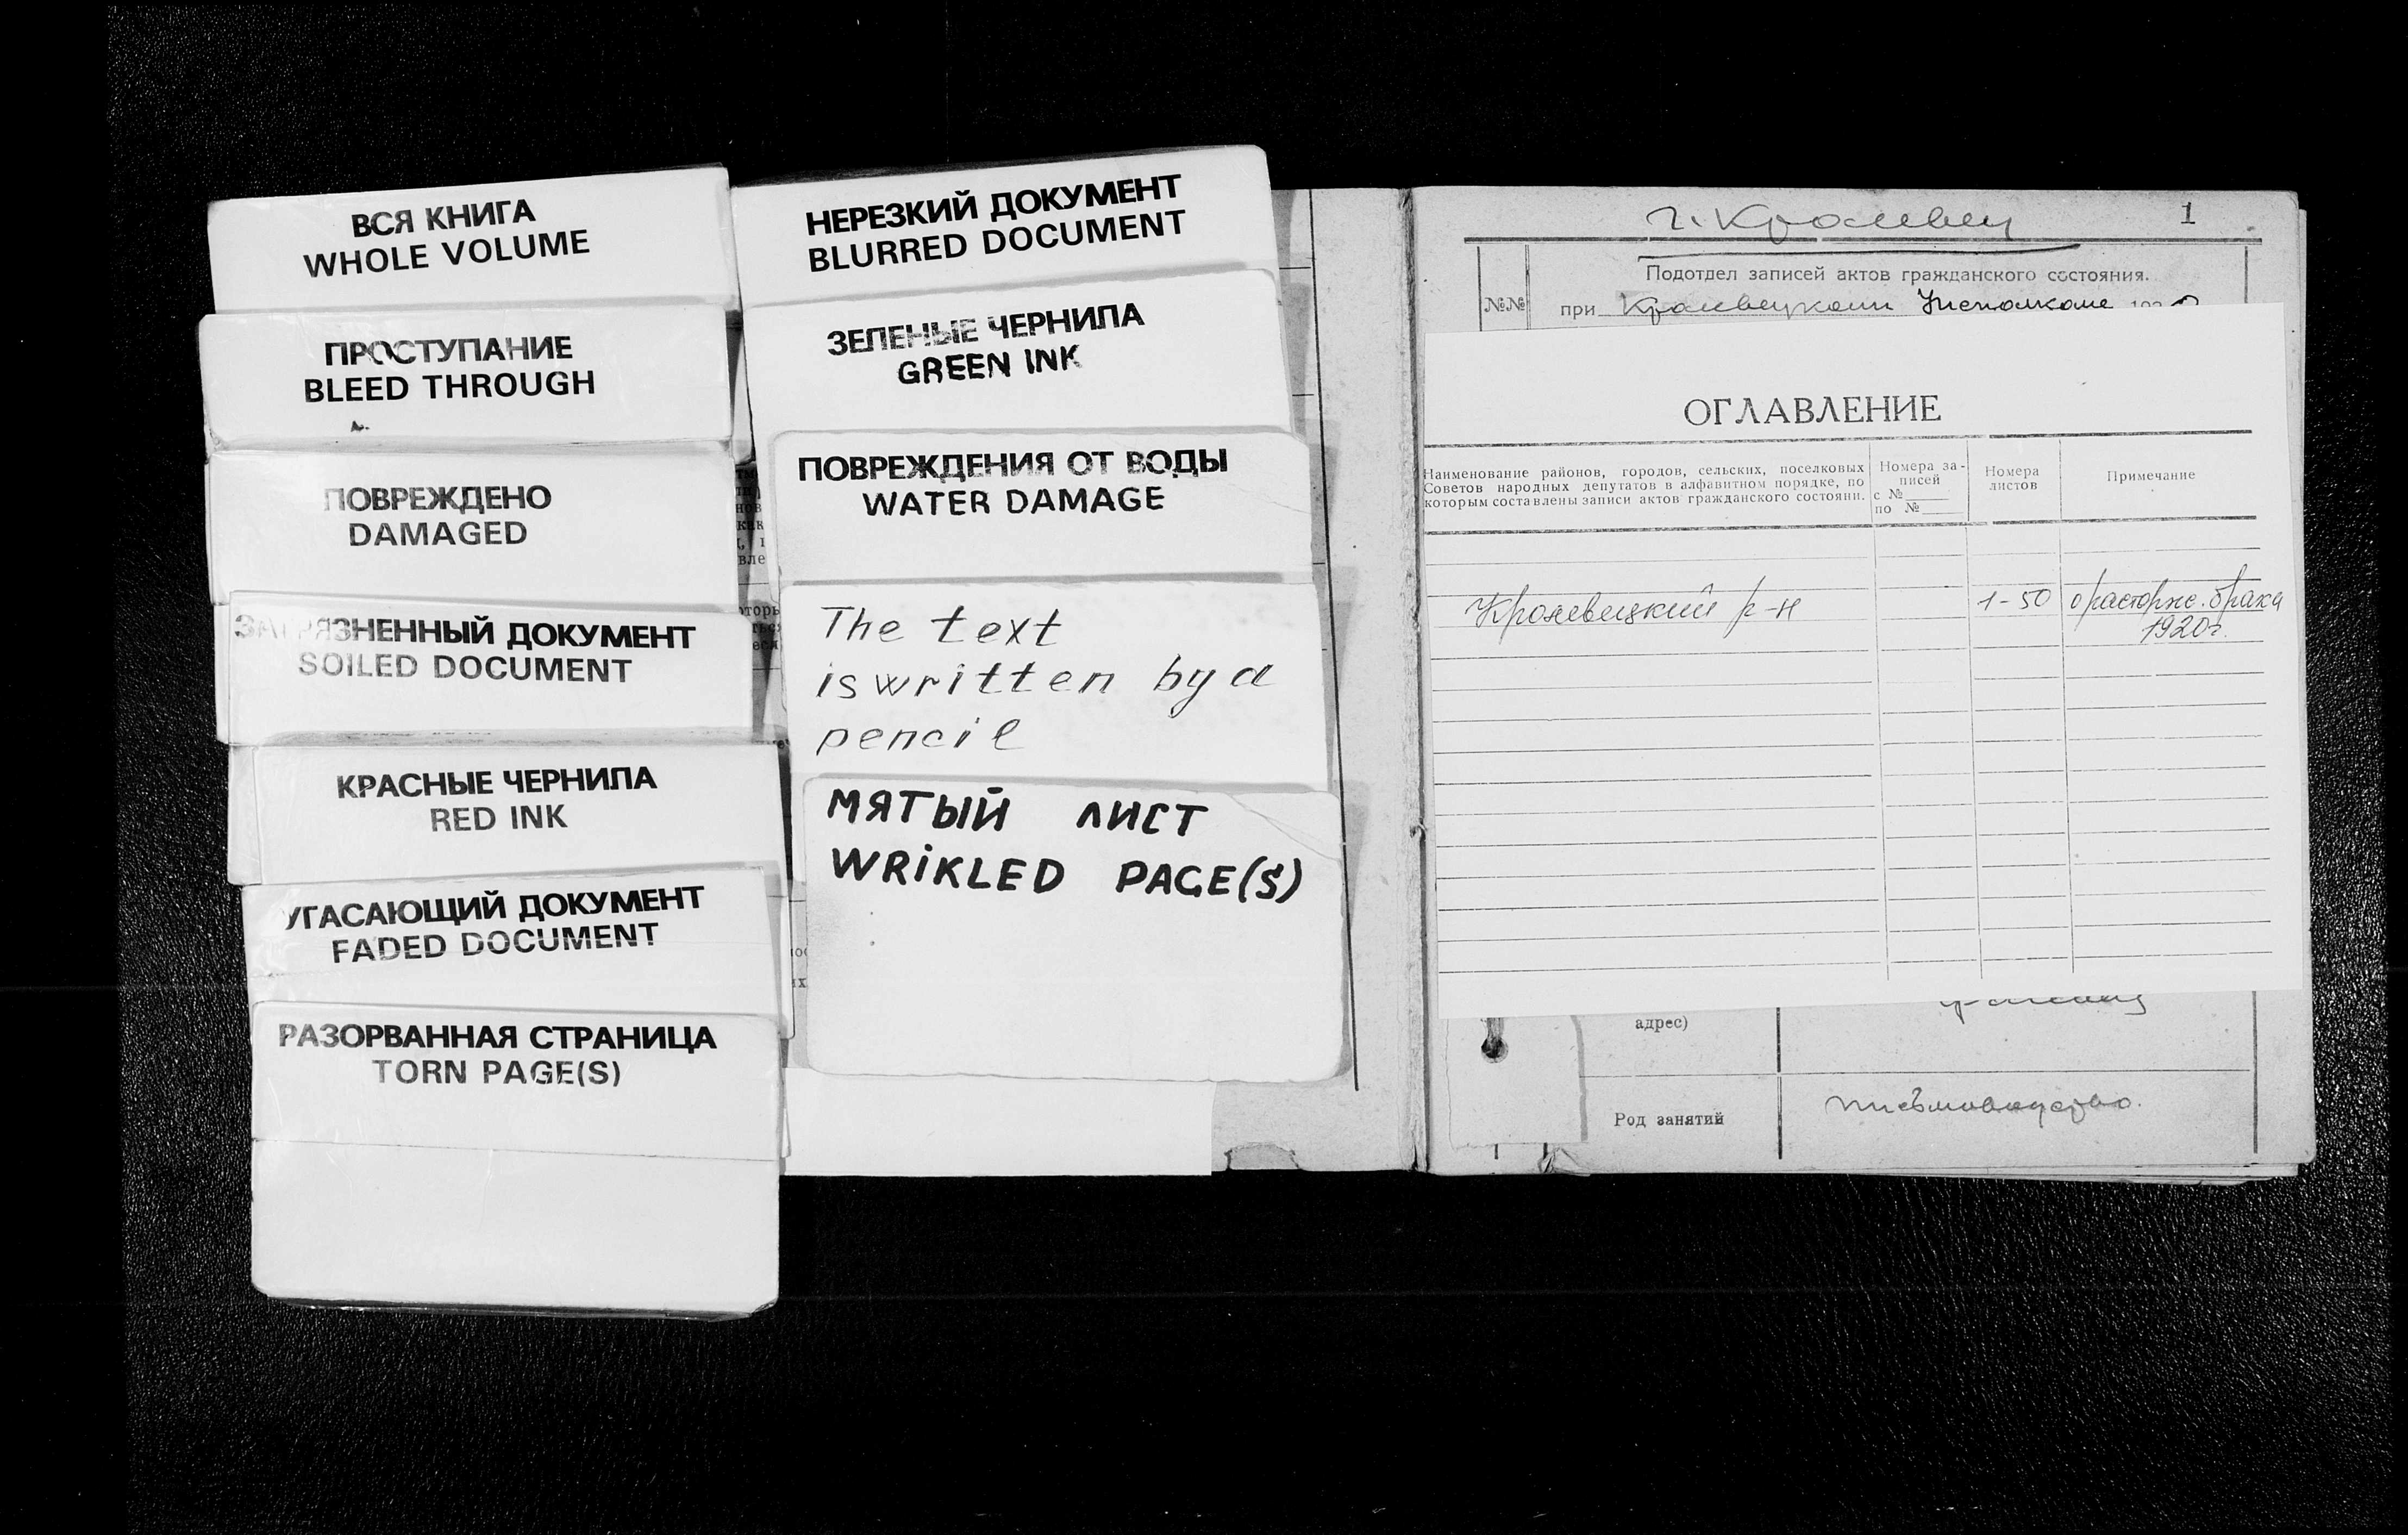 ВСЯ КНИГА
WHOLE VOLUME
ПРОСТУПАНИЕ
BLEED THROUGH
ПОВРЕЖДЕНО
DAMAGED
ЗАГРЯЗНЕННЫЙ ДОКУМЕНТ
SOILED DOCUMENT
КРАСНЫЕ ЧЕРНИЛА
RED INK
УГАСАЮЩИЙ ДОКУМЕНТ
FADED DOCUMENT
РАЗОРВАННАЯ СТРАНИЦА
TORN PAGE(S)
НЕРЕЗКИЙ ДОКУМЕНТ
BLURRED DOCUMENT
ЗЕЛЕНЫЕ ЧЕРНИЛА
GREEN INK
ПОВРЕЖДЕНИЯ ОТ ВОДЫ
WATER DAMAGE
The text
is written by a
pencil
МЯТЫЙ ЛИСТ
WRIKLED PAGE(S)
г. Кролевец 1
Подотдел записей актов гражданского состояния.
№№ при Кролевецком Исполкоме
ОГЛАВЛЕНИЕ
Наименование районов, городов, сельских, поселковых
Советов народных депутатов в алфавитном порядке, по
которым составлены записи актов гражданского состояни.
Номера за-
писей
с №
по №
Номера
листов
Примечание
Кролевецкий р-н 1-50 о расторж. брака
1920г.
адрес)
Род занятий письмоводство.